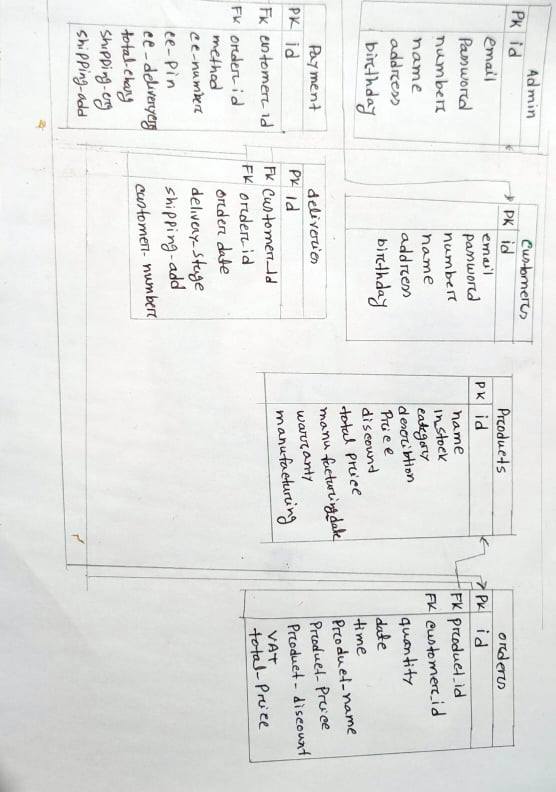 Admin
PK id
email
Password
number
name
address
birthday
Customers
PK id
email
password
number
name
address
birthday
Products
PK id
name
instock
category
describtion
Price
discound
total price
manufacturing date
warranty
manufacturing
orders
PK id
FK product_id
FK customer_id
quantity
date
time
Product-name
Product-Price
Product-discount
VAT
total-Price
Payment
PK id
FK customer id
FK order-id
method
cc-number
cc-pin
total-charg
shipping-crg
shipping-add
deliveries
PK id
FK Customer_Id
FK order-id
order date
delivery-stage
shipping-add
customer-number